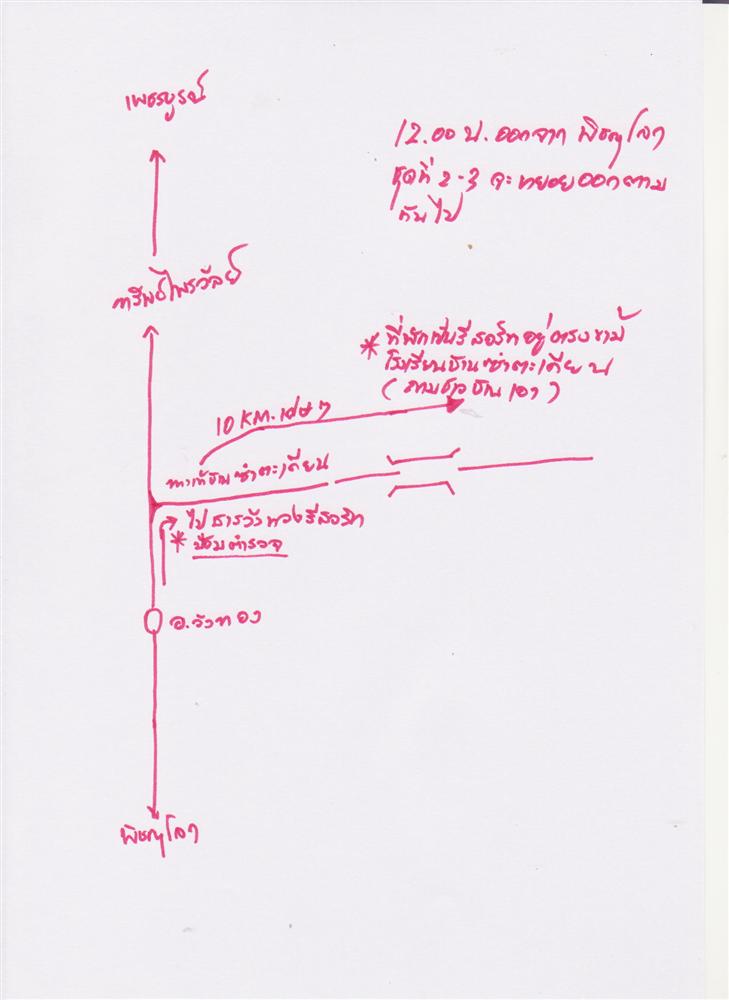 เพชรบูรณ์
12.00 น. ออกจาก พิษณุโลก
ชุดที่ 2-3 จะทยอยออกตาม
กันไป
ทรัพย์ไพรวัลย์
* ที่พักเป็นรีสอร์ทอยู่ตรงข้าม
โรงเรียนบ้านซำตะเคียน
(ถามชาวบ้านเอา)
10 KM. เศษๆ
ทางเข้าบ้านซำตะเคียน
ไปธารวังทองรีสอร์ท
* ป้อมตำรวจ
อ.วังทอง
พิษณุโลก